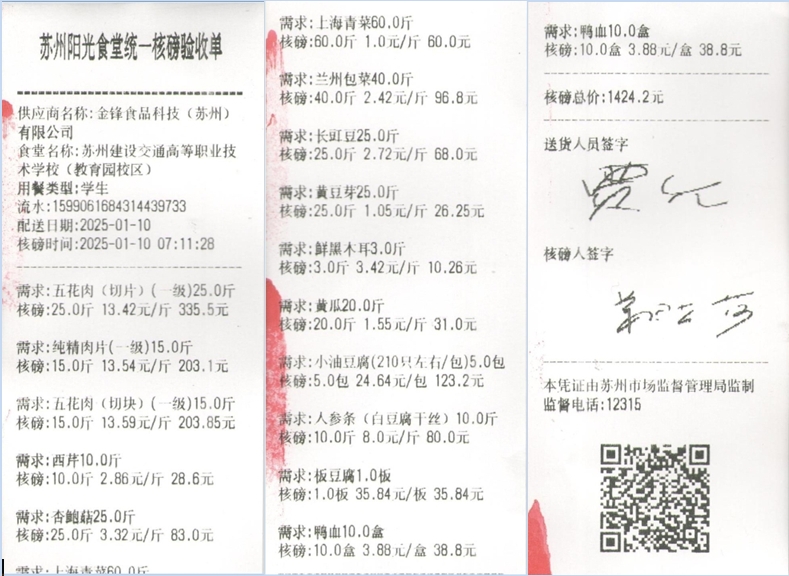 苏州阳光食堂统一核磅验收单
供应商名称:金锋食品科技（苏州）
有限公司
食堂名称:苏州建设交通高等职业技
术学校（教育园校区）
用餐类型:学生
流水:1599061684314439733
配送日期:2025-01-10
核磅时间:2025-01-10 07:11:28
需求:五花肉（切片）(一级)25.0斤
核磅:25.0斤 13.42元/斤 335.5元
需求:纯精肉片(一级)15.0斤
核磅:15.0斤 13.54元/斤 203.1元
需求:五花肉（切块）(一级)15.0斤
核磅:15.0斤 13.59元/斤 203.85元
需求:西芹10.0斤
核磅:10.0斤 2.86元/斤 28.6元
需求:杏鲍菇25.0斤
核磅:25.0斤 3.32元/斤 83.0元
需求:上海青菜60.0斤
需求:上海青菜60.0斤
核磅:60.0斤 1.0元/斤 60.0元
需求:兰州包菜40.0斤
核磅:40.0斤 2.42元/斤 96.8元
需求:长豇豆25.0斤
核磅:25.0斤 2.72元/斤 68.0元
需求:黄豆芽25.0斤
核磅:25.0斤 1.05元/斤 26.25元
需求:鲜黑木耳3.0斤
核磅:3.0斤 3.42元/斤 10.26元
需求:黄瓜20.0斤
核磅:20.0斤 1.55元/斤 31.0元
需求:小油豆腐(210只左右/包)5.0包
核磅:5.0包 24.64元/包 123.2元
需求:人参条（白豆腐干丝）10.0斤
核磅:10.0斤 8.0元/斤 80.0元
需求:板豆腐1.0板
核磅:1.0板 35.84元/板 35.84元
需求:鸭血10.0盒
核磅:10.0盒 3.88元/盒 38.8元
需求:鸭血10.0盒
核磅:10.0盒 3.88元/盒 38.8元
核磅总价:1424.2元
送货人员签字
核磅人签字
本凭证由苏州市场监督管理局监制
监督电话:12315